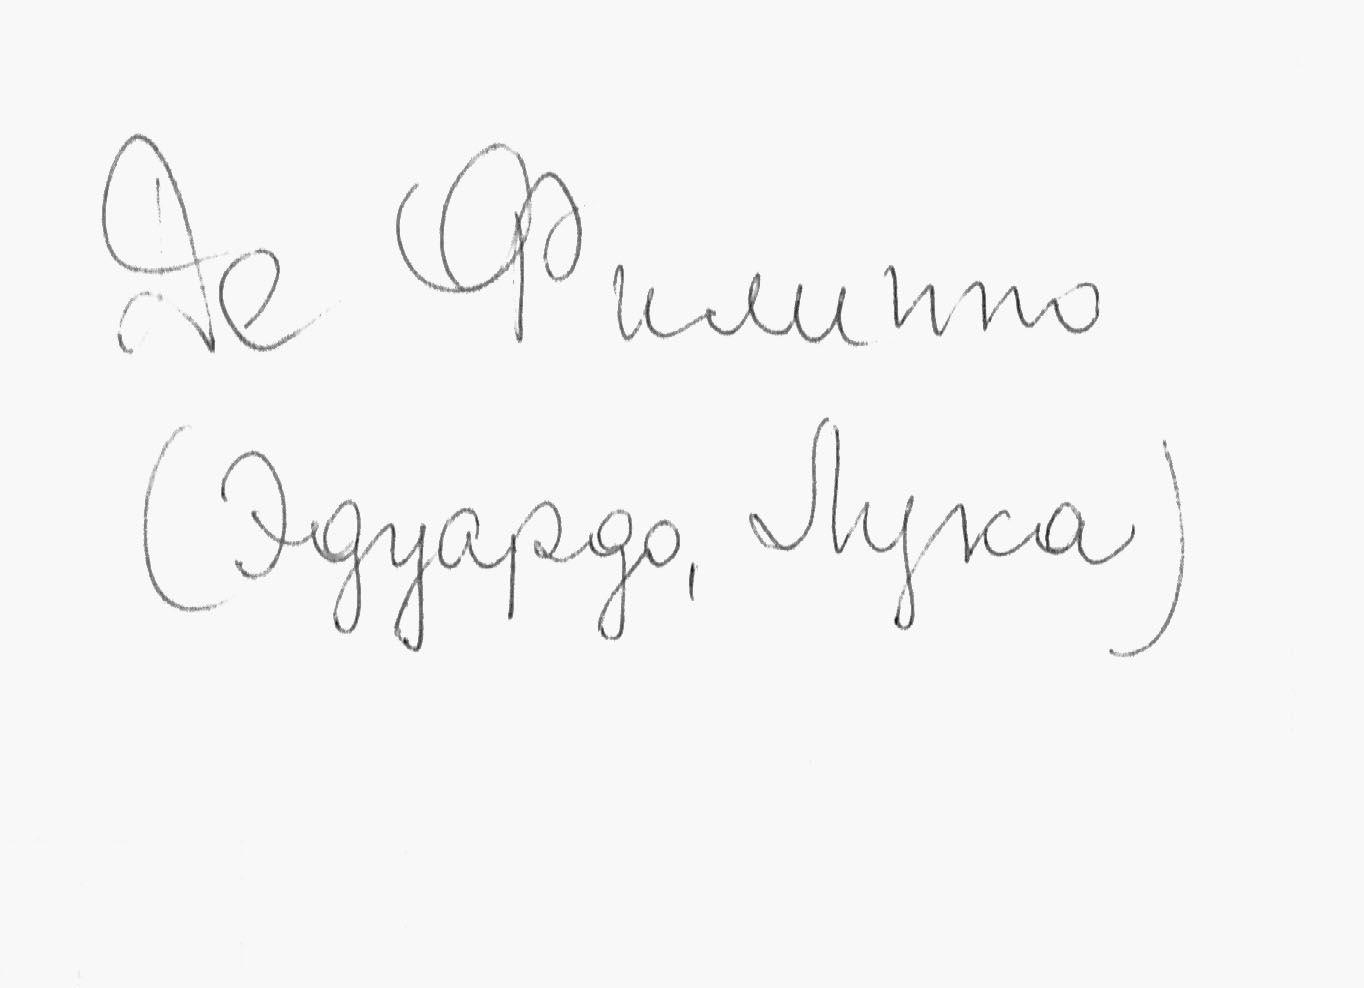 Де Филиппо
(Эдуардо, Лука)